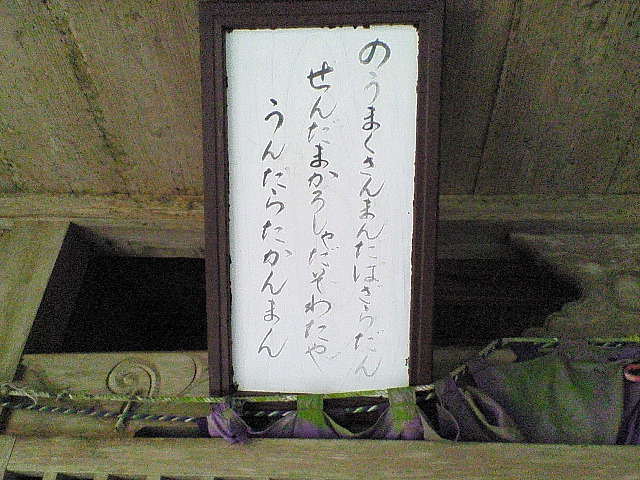 のうまくさんまんだばざらだん
せんだまかろしゃだそわたや
うんたらたかんまん